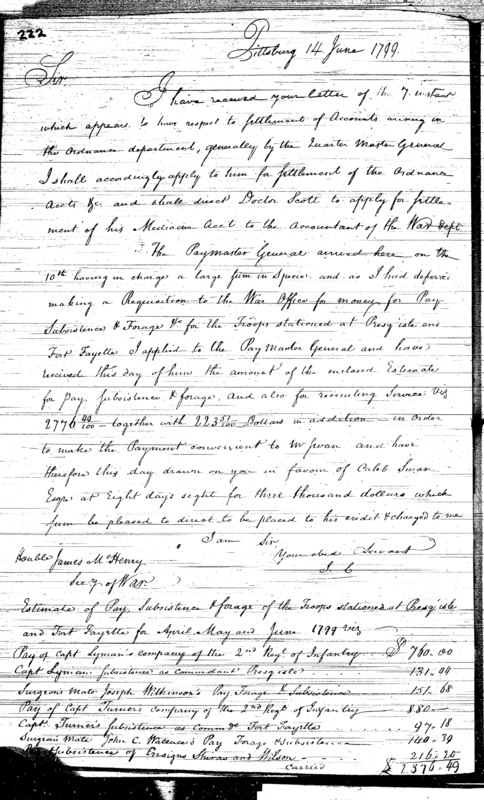 222
Pittsburg 14 June 1799
Sir
I have received your letter of the 7. instant
which appears to have respect to settlement of Accounts arising in
the Ordnance department, generally by the Quarter Master General
I shall accordingly apply to him for settlement of the Ordnance
Accts &c and shall direct Doctor Scott to apply for settle-
ment of his Medicine Acct to the Accountant of the War Dept
The Paymaster General arrived here on the
10th having in charge a large sum in Specie and as I had defered
making a Requisition to the War Office for money for Pay
Subsistence & Forage &c for the Troops stationed at Presq'isle and
Fort Fayette I applied to the Pay Master General and have
received this day of him the amount of the enclosed Estimate
for pay, subsistence & forage, and also for recruiting Service Viz
2776 49/100 – together with 223 51/100 Dollars in addition – in order
to make the Payment convenient to Mr Swan and have
therefore this day drawn on you in favour of Caleb Swan
Esqr. at Eight days sight for three thousand dollars which
sum be pleased to direct to be placed to his credit & charged to me
I am Sir
Your obed Servant
I C
Honble James McHenry
Secy of War
Estimate of Pay, Subsistence & forage of the Troops stationed at Presq'isle
and Fort Fayette for April May and June 1799 viz
Pay of Capt Lyman's company of the 2nd Regt of Infantry $ 760.00
Capt Lyman Subsistence as commandant Presq'isle 131.04
Surgeons Mate Joseph Wilkinson's Pay Forage & Subsistence 151.68
Pay of Capt Turner's company of the 2nd Regt of Infantry 880 –
Capt. Turner's Subsistence as Commdt Fort Fayette 97.18
Surgeons Mate John C. Wallace's Pay Forage & Subsistence 140.39
Subsistence of Ensigns Shiras and Wilson 216.20
Carried $ 2376.49